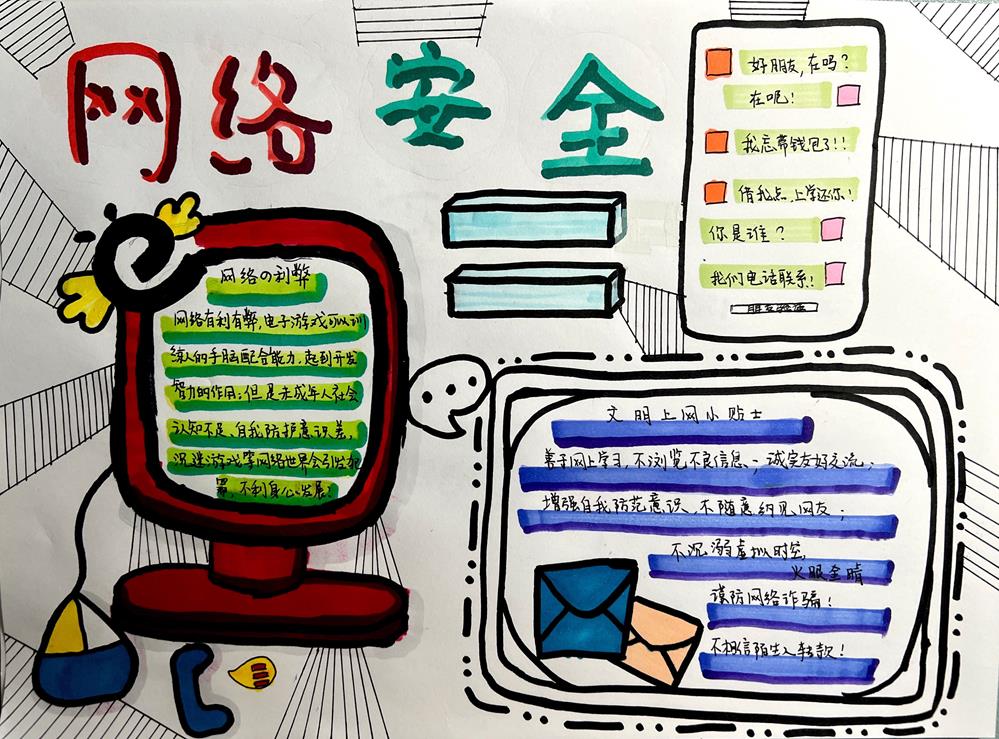 网络安全
好朋友,在吗?
在呢!
我忘带钱包了!!
借我点,上学还你!
你是谁?
我们电话联系!
网络の利弊
网络有利有弊,电子游戏可以训
练人的手脑配合能力,起到开发
智力的作用;但是未成年人社会
认知不足、自我防护意识差,
沉迷游戏等网络世界会引发犯
罪,不利身心发展!
文明上网小贴士
善于网上学习,不浏览不良信息;诚实友好交流;
增强自我防范意识、不随意约见网友;
不沉溺虚拟时空,
火眼金睛
谨防网络诈骗!
不相信陌生人转款!